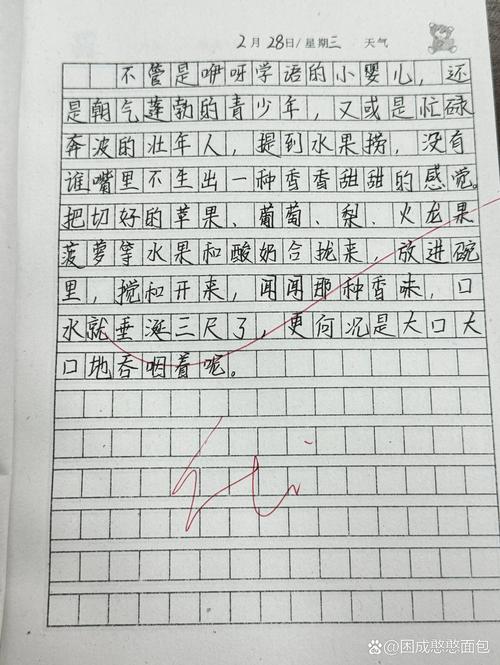 2月28日/星期三 天气
不管是咿呀学语的小婴儿，还
是朝气蓬勃的青少年，又或是忙碌
奔波的壮年人，提到水果捞，没有
谁嘴里不生出一种香香甜甜的感觉。
把切好的苹果、葡萄、梨、火龙果
菠萝等水果和酸奶合拢来，放进碗
里，搅和开来，闻闻那种香味，口
水就垂涎三尺了，更何况是大口大
口地吞咽着呢。
百度@困成憨憨面包